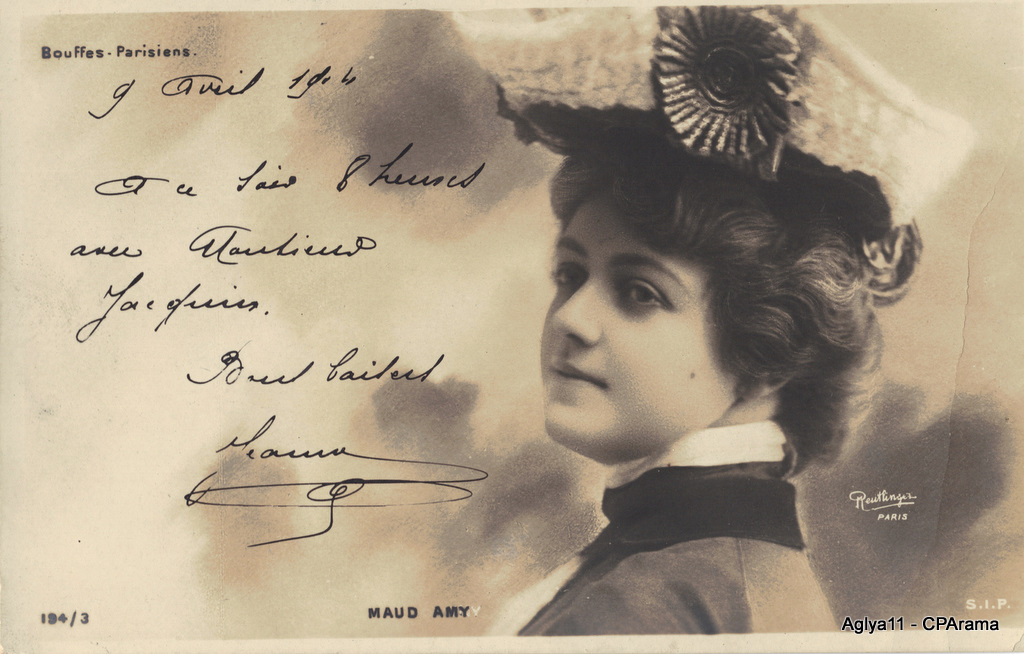 Bouffes-Parisiens.
9 Avril 1904
A ce soir 8 heures
avec Monsieur
Jacquin.
Bons baisers
Jeanne
Reutlinger
PARIS
194/3
MAUD AMY
S.I.P.
Aglya11 - CPArama